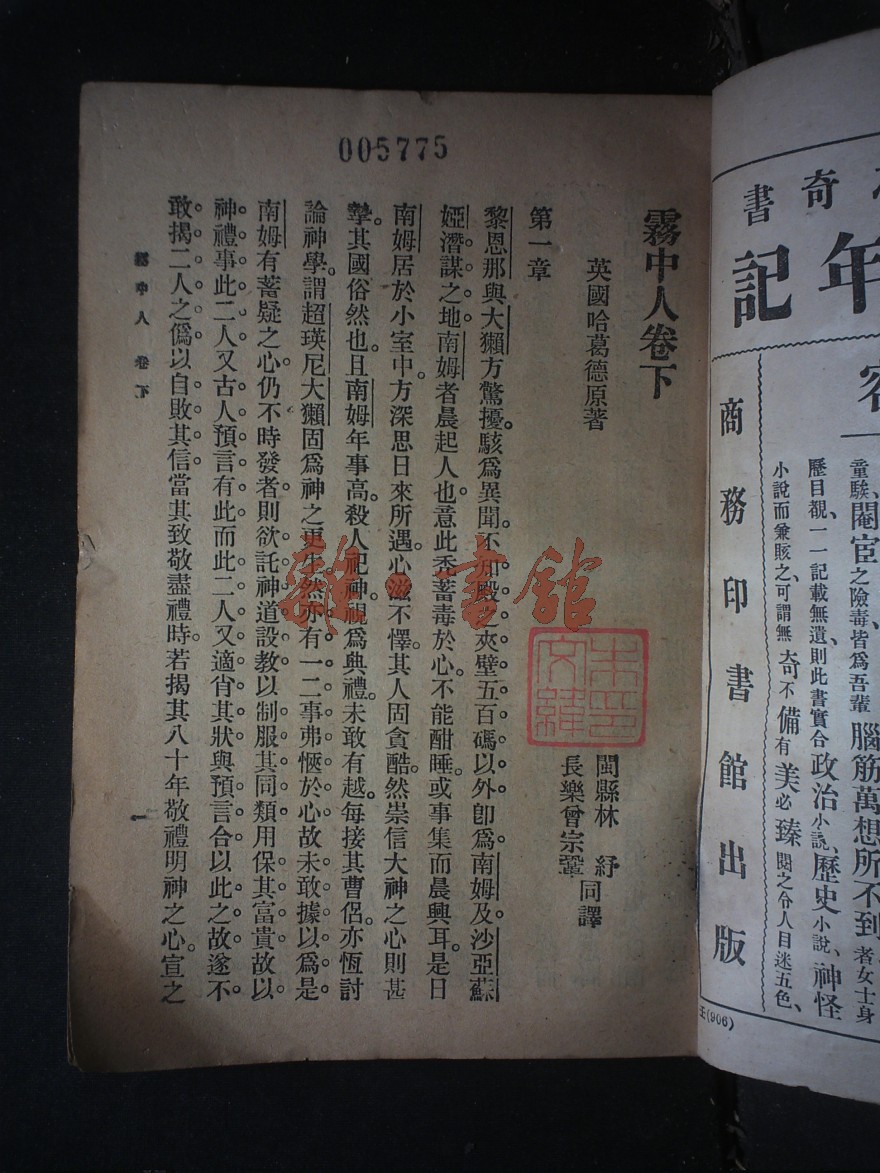 005775
霧中人卷下
英國哈葛德原著
閩縣林 紓
長樂曾宗鞏
同譯
第一章
黎恩那與大獺方驚擾。駭爲異聞。不知殿之夾壁五百碼以外卽爲南姆及沙亞蘇
婭潛謀之地南姆者晨起人也意此禿蓄毒於心。不能酣睡。或事集而晨興耳。是日
南姆居於小室中。方深思日來所遇。心滋不懌。其人固貪酷。然崇信大神之心則甚
摯。其國俗然也。且南姆年事高。殺人祀神。視爲典禮。未敢有越。每接其曹侶。亦恆討
論神學。謂超瑛尼大獺固爲神之更生。然亦有一二事弗愜於心故未敢據以爲是
南姆有蓄疑之心。仍不時發者。則欲託神道設教以制服其同類用保其富貴故以
神禮事此二人又古人預言有此而此二人又適肖其狀與預言合以此之故遂不
敢揭二人之僞以自敗其信當其致敬盡禮時。若揭其八十年敬禮明神之心。宣之
霧中人 卷下
一
雜·書館
奇書
年記
商務印書館出版
童騃、閹宦之險毒皆爲吾輩腦筋萬想所不到者女士身
歷目覩、一一記載無遺、則此書實合政治小說、歷史小說、神怪
小說而兼賅之、可謂無奇不備有美必臻閱之令人目迷五色、
(906)